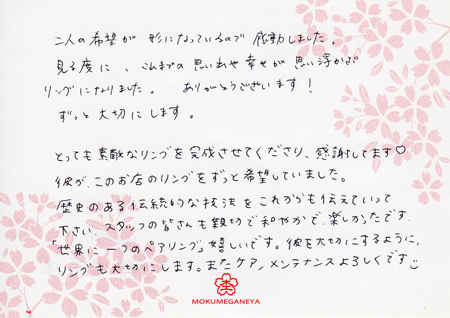 二人の希望が形になっているので感動しました。
見る度に、これまでの思い出や幸せが思い浮かぶ
リングになりました。ありがとうございます！
ずっと大切にします。
とっても素敵なリングを完成させてくださり、感謝してます♡
彼が、このお店のリングをずっと希望していました。
歴史のある伝統的な技法をこれからも伝えていって
下さい。スタッフの皆さんも親切で和やかで、楽しかったです。
「世界に一つのペアリング」嬉しいです。彼を大切にするように、
リングも大切にします。またケア、メンテナンスよろしくです
MOKUMEGANEYA